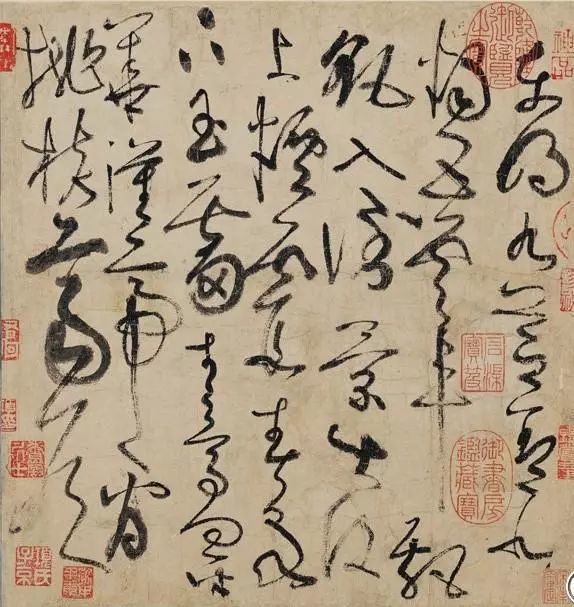 東明九芝蓋北
燭五雲車飄
飖入倒景出沒
上煙霞春泉
下玉霤青鳥向金
華漢帝看
桃核齊侯問
神品
御書房鑑藏寶